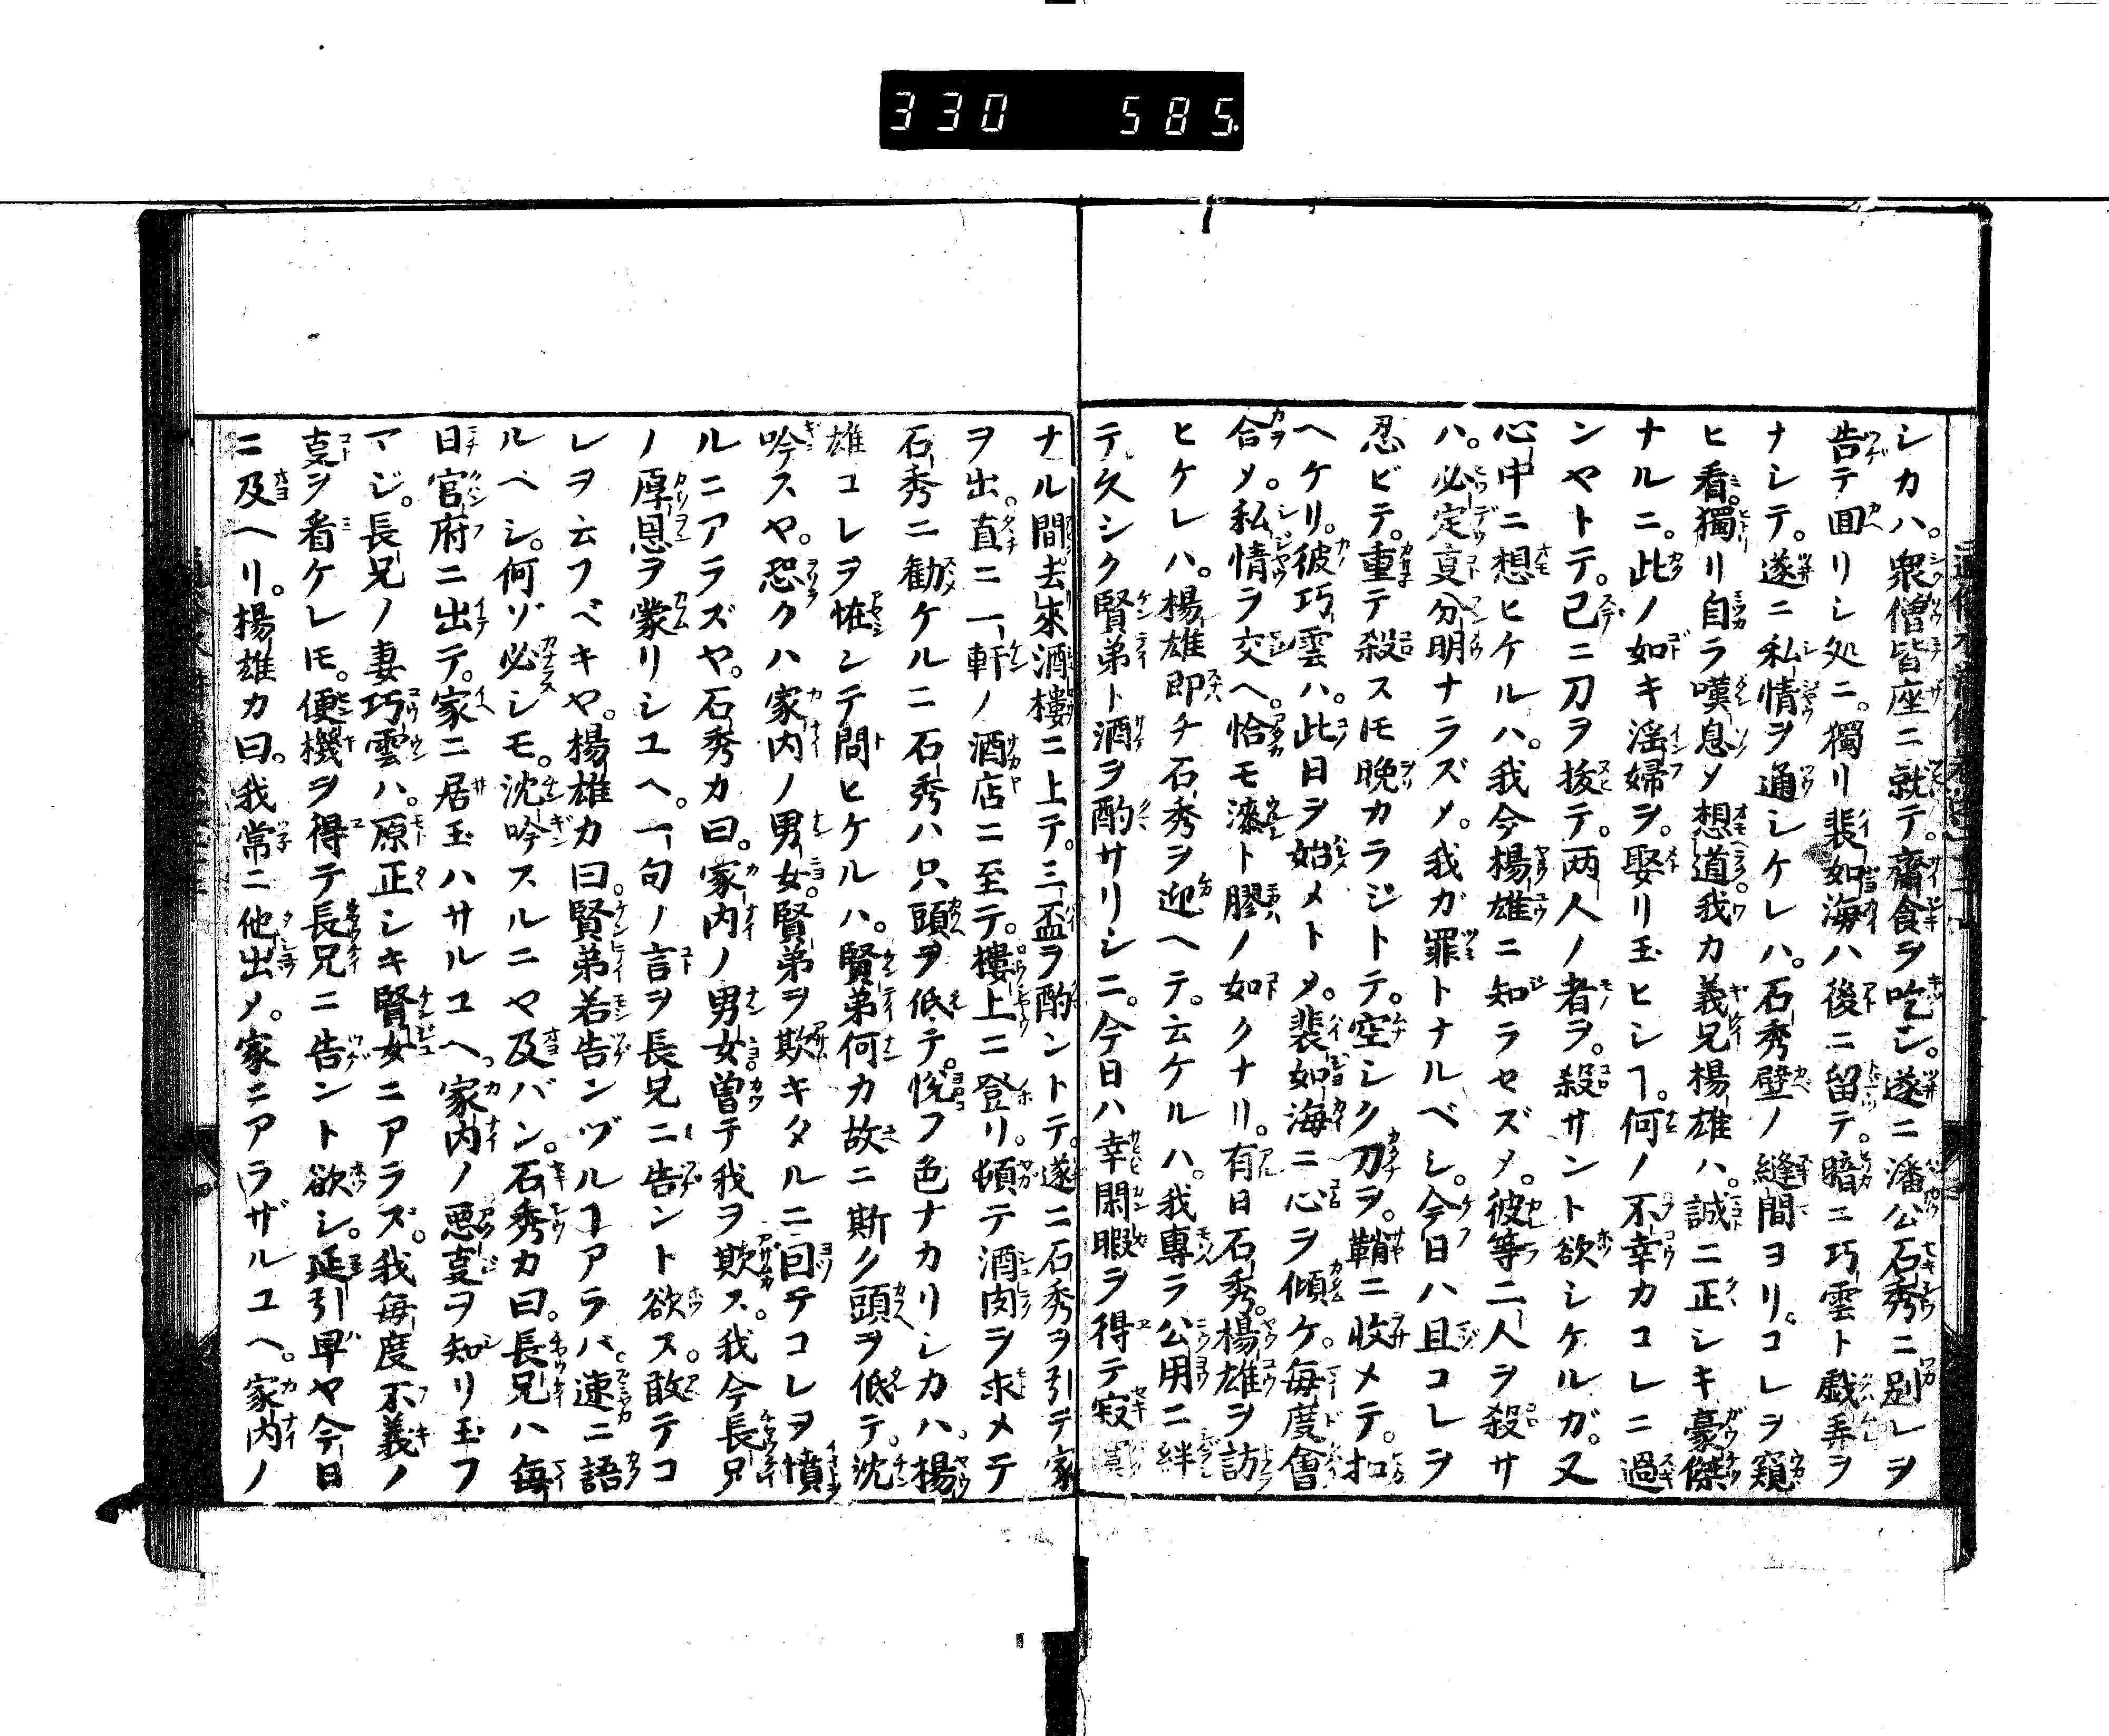 330 585.
シカハ。衆僧皆座ニ就テ。齋食ヲ吃シ。遂ニ潘公石秀ニ別レヲ
告テ囬リシ処ニ。獨リ裴如海ハ後ニ留テ。暗ニ巧雲ト戯弄ヲ
ナシテ。遂ニ私情ヲ通シケレハ。石秀壁ノ縫間ヨリ。コレヲ窺
ヒ看。獨リ自ラ嘆息乄想道我カ義兄楊雄ハ。誠ニ正シキ豪傑
ナルニ。此ノ如キ淫婦ヲ。娶リ玉ヒシヿ。何ノ不幸カコレニ過
ンヤトテ。已ニ刀ヲ拔テ。両人ノ者ヲ。殺サント欲シケルガ。又
心中ニ想ヒケルハ。我今楊雄ニ知ラセズ乄。彼等二人ヲ殺サ
ハ。必定㕝分明ナラズ乄。我ガ罪トナルベシ。今日ハ且コレヲ
忍ビテ。重テ殺スモ晩カラジトテ。空シク刀ヲ。鞘ニ收メテ。扣
ヘケリ。彼巧雲ハ。此日ヲ始メト乄。裴如海ニ心ヲ傾ケ。毎度會
合乄。私情ヲ交ヘ。恰モ漆ト膠ノ如クナリ。有日石秀。楊雄ヲ訪
ヒケレハ。楊雄即チ石秀ヲ迎ヘテ。云ケルハ。我專ラ公用ニ絆
テ久シク賢弟ト酒ヲ酌サリシニ。今日ハ幸閑暇ヲ得テ寂寞
ナル間。去來酒樓ニ上テ。三盃ヲ酌ントテ。遂ニ石秀ヲ引テ家
ヲ出。直ニ一軒ノ酒店ニ至テ。樓上ニ登リ。頓テ酒肉ヲ求メテ
石秀ニ勸ケルニ石秀ハ只頭ヲ低テ。悦フ色ナカリシカハ。楊
雄コレヲ恠シテ問ヒケルハ。賢弟何カ故ニ斯ク頭ヲ低テ。沈
吟スヤ。恐クハ家内ノ男女。賢弟ヲ欺キタルニ囙テコレヲ憤
ルニアラズヤ。石秀カ曰。家内ノ男女曽テ我ヲ欺ス。我今長兄
ノ厚恩ヲ蒙リシユヘ。一句ノ言ヲ長兄ニ告ント欲ス。敢テコ
レヲ云フベキヤ。楊雄カ曰。賢弟若告ンヅルヿアラバ。速ニ語
ルベシ。何ゾ必シモ。沈吟スルニヤ及バン。石秀カ曰。長兄ハ毎
日官府ニ出テ。家ニ居玉ハサルユヘ。家内ノ悪㕝ヲ知リ玉フ
マジ。長兄ノ妻巧雲ハ。原正シキ賢女ニアラズ。我毎度不義ノ
㕝ヲ看ケレモ。便機ヲ得テ長兄ニ告ント欲シ。延引早ヤ今日
ニ及ヘリ。楊雄カ曰。我常ニ他出乄。家ニアラザルユヘ。家内ノ